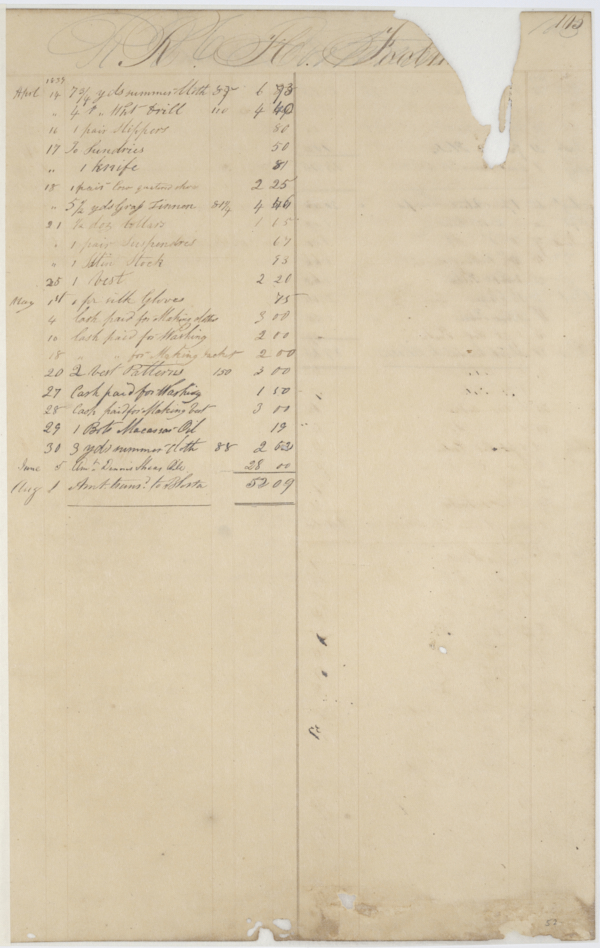 113
R. K. C. H.
1839
April 14 7 3/4 yds summer Cloth 6 93
" 4 " Wht Drill 110 4 40
16 1 pair Slippers 80
17 To Sundries 50
" 1 Knife 81
18 1 pair low quartered shoe 2 25
" 5 1/2 yds Grass Linnen 81 1/4 4 46
21 1/2 doz Collars 1 15
" 1 pair Suspendres 67
" 1 Stock 83
25 1 Vest 2 20
May 1st 1 pr silk Gloves 75
4 Cash paid for Making clothes 3 00
10 Cash paid for Washing 2 00
18 " " for Making Jacket 2 00
20 2 Vest Patterns 150 3 00
27 Cash paid for Washing 1 50
28 Cash paid for Making Vest 3 00
29 1 Bott Macassar Oil 19
30 3 yds summer Cloth 88 2 63
June 5 Amt. Dennis 28 00
Aug 1 Amt. trans. to 52 09